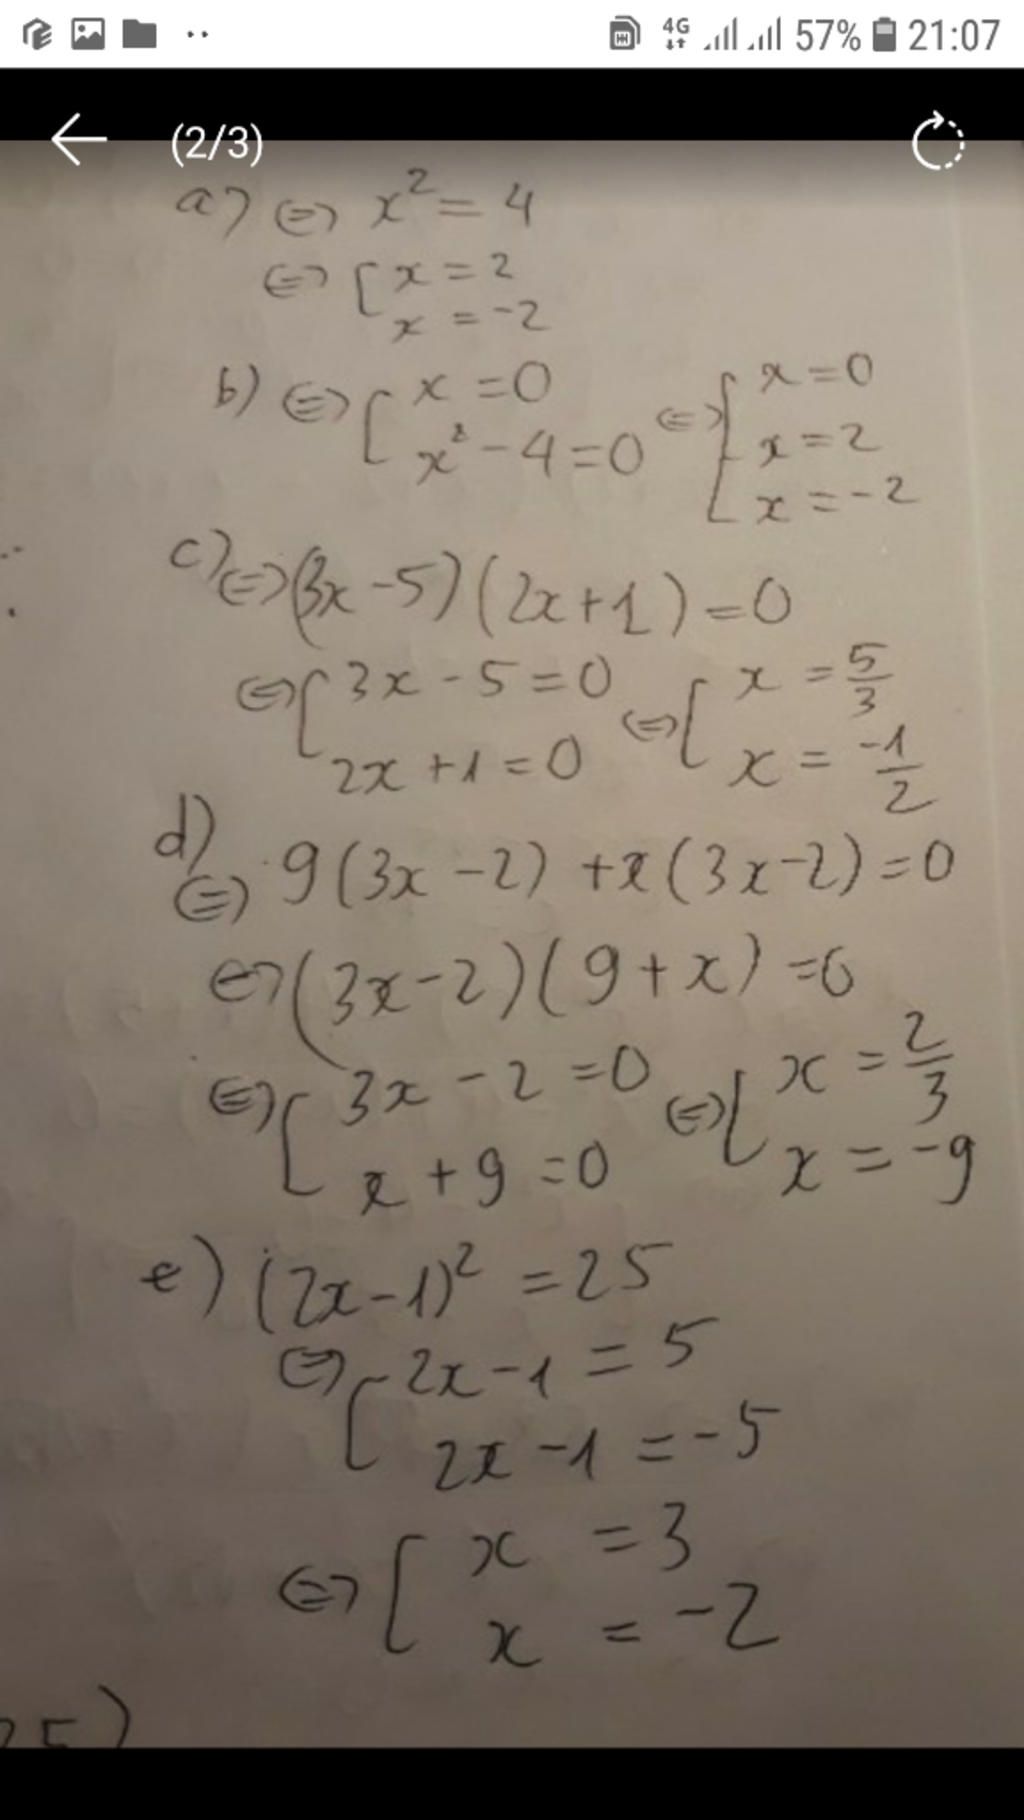 4G 57% 21:07
(2/3)
a) ⇔ x² = 4
⇔ [ x = 2
x = -2
b) ⇔ [ x = 0 ⇔ [ x = 0
x² - 4 = 0 x = 2
x = -2
c) ⇔ (3x - 5)(2x + 1) = 0
⇔ [ 3x - 5 = 0 ⇔ [ x = 5/3
2x + 1 = 0 x = -1/2
d)
⇔ 9(3x - 2) + x(3x - 2) = 0
⇔ (3x - 2)(9 + x) = 0
⇔ [ 3x - 2 = 0 ⇔ [ x = 2/3
x + 9 = 0 x = -9
e) (2x - 1)² = 25
⇔ [ 2x - 1 = 5
2x - 1 = -5
⇔ [ x = 3
x = -2